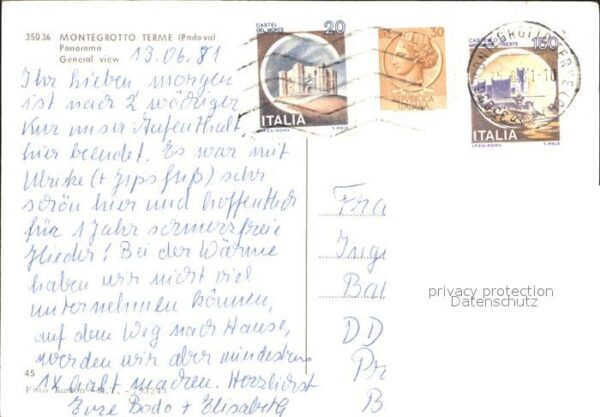 35036 MONTEGROTTO TERME (Padova)
Panorama
General view
13.06.81
Ihr Lieben morgen
ist nach 2 wöchiger
Kur unser Aufenthalt
hier beendet. Es war mit
Ulrike (+ Gipsfuß) sehr
schön hier und hoffentlich
für 1 Jahr schmerzfreie
Glieder! Bei der Wärme
haben wir nicht viel
unternehmen können,
auf dem Weg nach Hause,
werden wir aber mindestens
1x halt machen. Herzlichst
Eure Bodo + Elisabeth
45
CASTEL DEL MONTE
20
ITALIA
I.P.Z.S.-ROMA T. MELE
50
REPUBBLICA
150
ITALIA
I.P.Z.S.-ROMA T. MELE
Fra
Inge
DD
privacy protection
Datenschutz